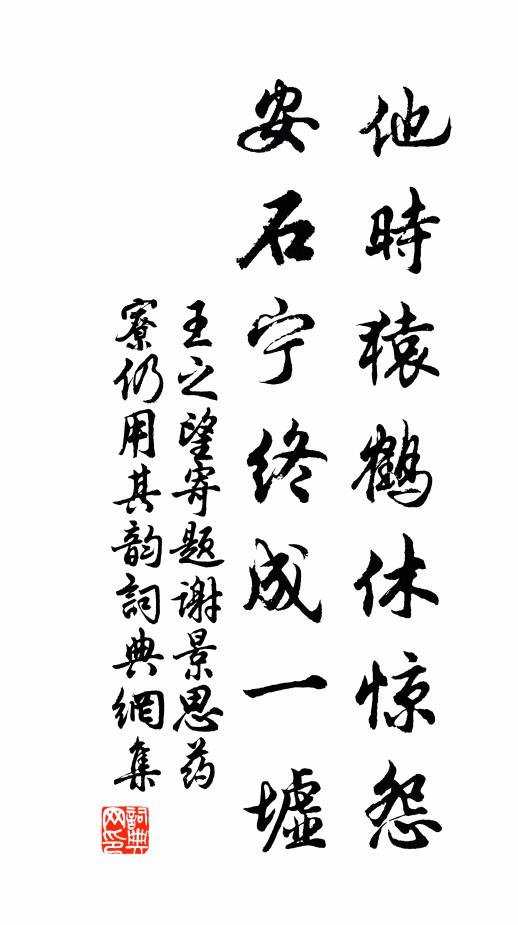 他時猿鶴休惊怨
安石宁終成一墟
王之望寄題謝景思药
寮仍用其韵詞典網集
詞典网印